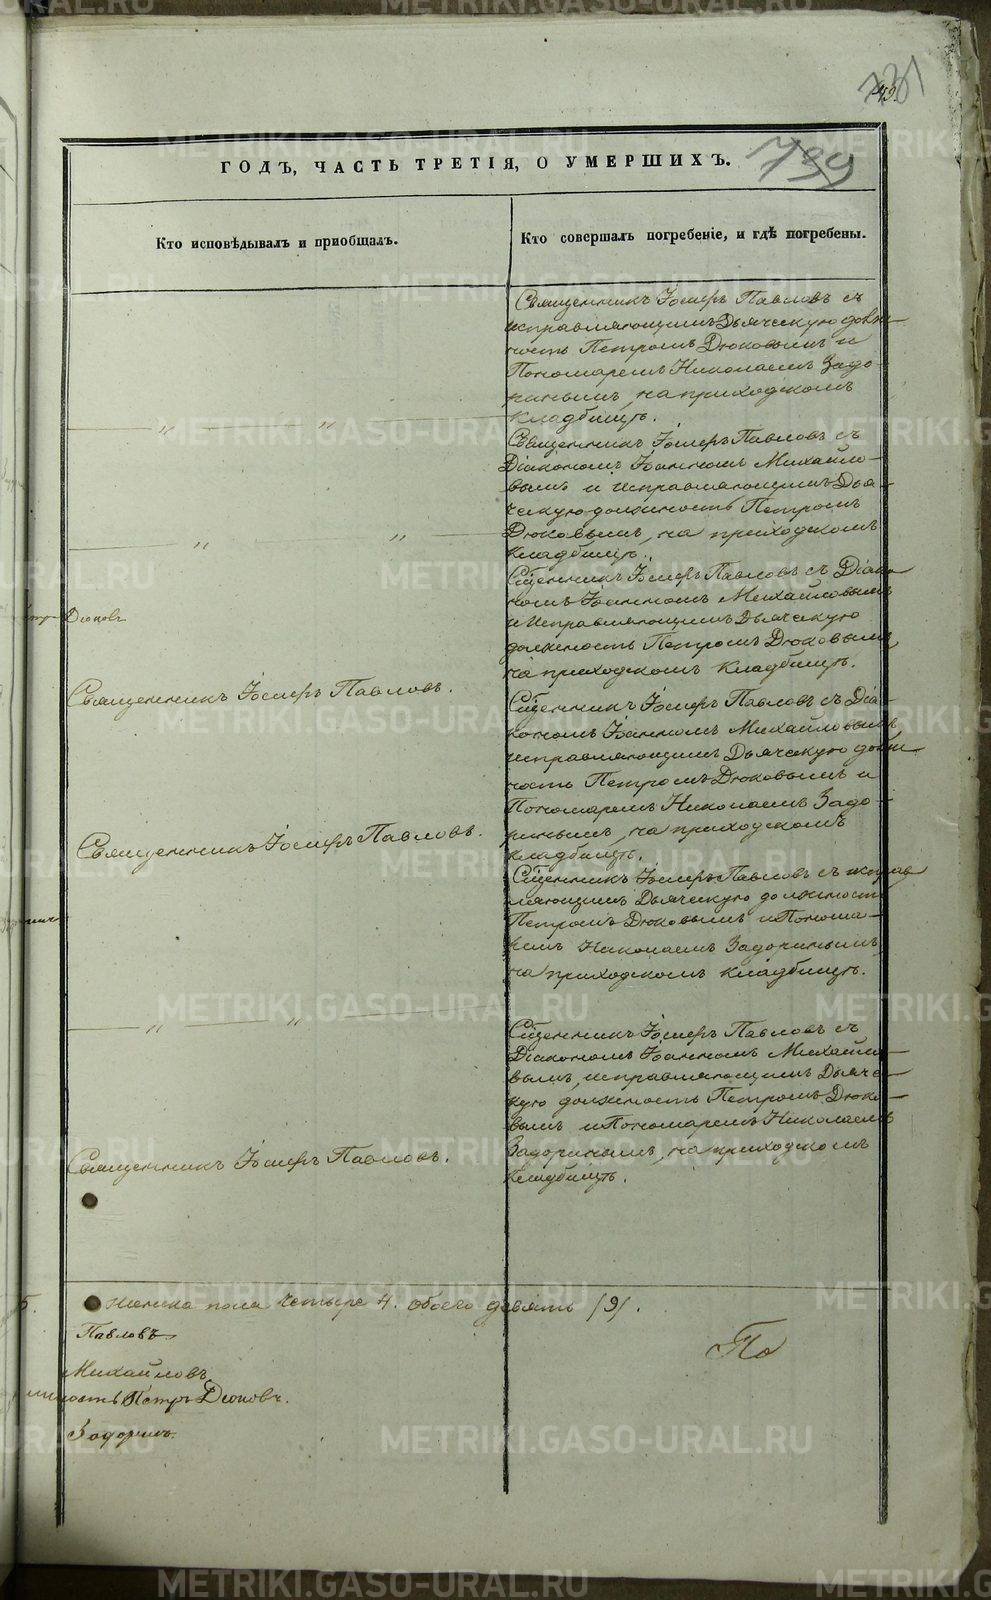 731
799
ГОДЪ, ЧАСТЬ ТРЕТІЯ, О УМЕРШИХЪ.
Кто исповѣдывалъ и приобщалъ.
Кто совершалъ погребеніе, и гдѣ погребены.
Священникъ Іосифъ Павловъ съ
исправляющимъ Дьяческую долж-
ность Петромъ Дюковымъ и
Пономаремъ Николаемъ Задо-
ринымъ, на приходскомъ
кладбищѣ.
— „ — „ —
Священникъ Іосифъ Павловъ съ
Діакономъ Іоанномъ Михайло-
вымъ и исправляющимъ Дья-
ческую должность Петромъ
Дюковымъ, на приходскомъ
кладбищѣ.
— „ — „ —
Сщенникъ Іосифъ Павловъ съ Діако-
номъ Іоанномъ Михайловымъ
и исправляющимъ Дьяческую
должность Петромъ Дюковымъ,
на приходскомъ кладбищѣ.
Дюковъ
Священникъ Іосифъ Павловъ.
Сщенникъ Іосифъ Павловъ съ Діа-
кономъ Іоанномъ Михайловымъ,
исправляющимъ Дьяческую долж-
ность Петромъ Дюковымъ и
Пономаремъ Николаемъ Задо-
ринымъ, на приходскомъ
кладбищѣ.
Священникъ Іосифъ Павловъ.
Сщенникъ Іосифъ Павловъ съ исправ
ляющимъ Дьяческую должность
Петромъ Дюковымъ и Понома-
ремъ Николаемъ Задоринымъ,
на приходскомъ кладбищѣ.
— „ — „ —
Сщенникъ Іосифъ Павловъ съ
Діакономъ Іоанномъ Михайло-
вымъ, исправляющимъ Дьяче-
кую должность Петромъ Дюко-
вымъ и Пономаремъ Николаемъ
Задоринымъ, на приходскомъ
кладбищѣ.
Священникъ Іосифъ Павловъ.
5. женска пола четыре 4. обоего девять /9/.
Павловъ
Михайловъ
жность Петръ Дюковъ.
Задоринъ.
По
METRIKI.GASO-URAL.RU